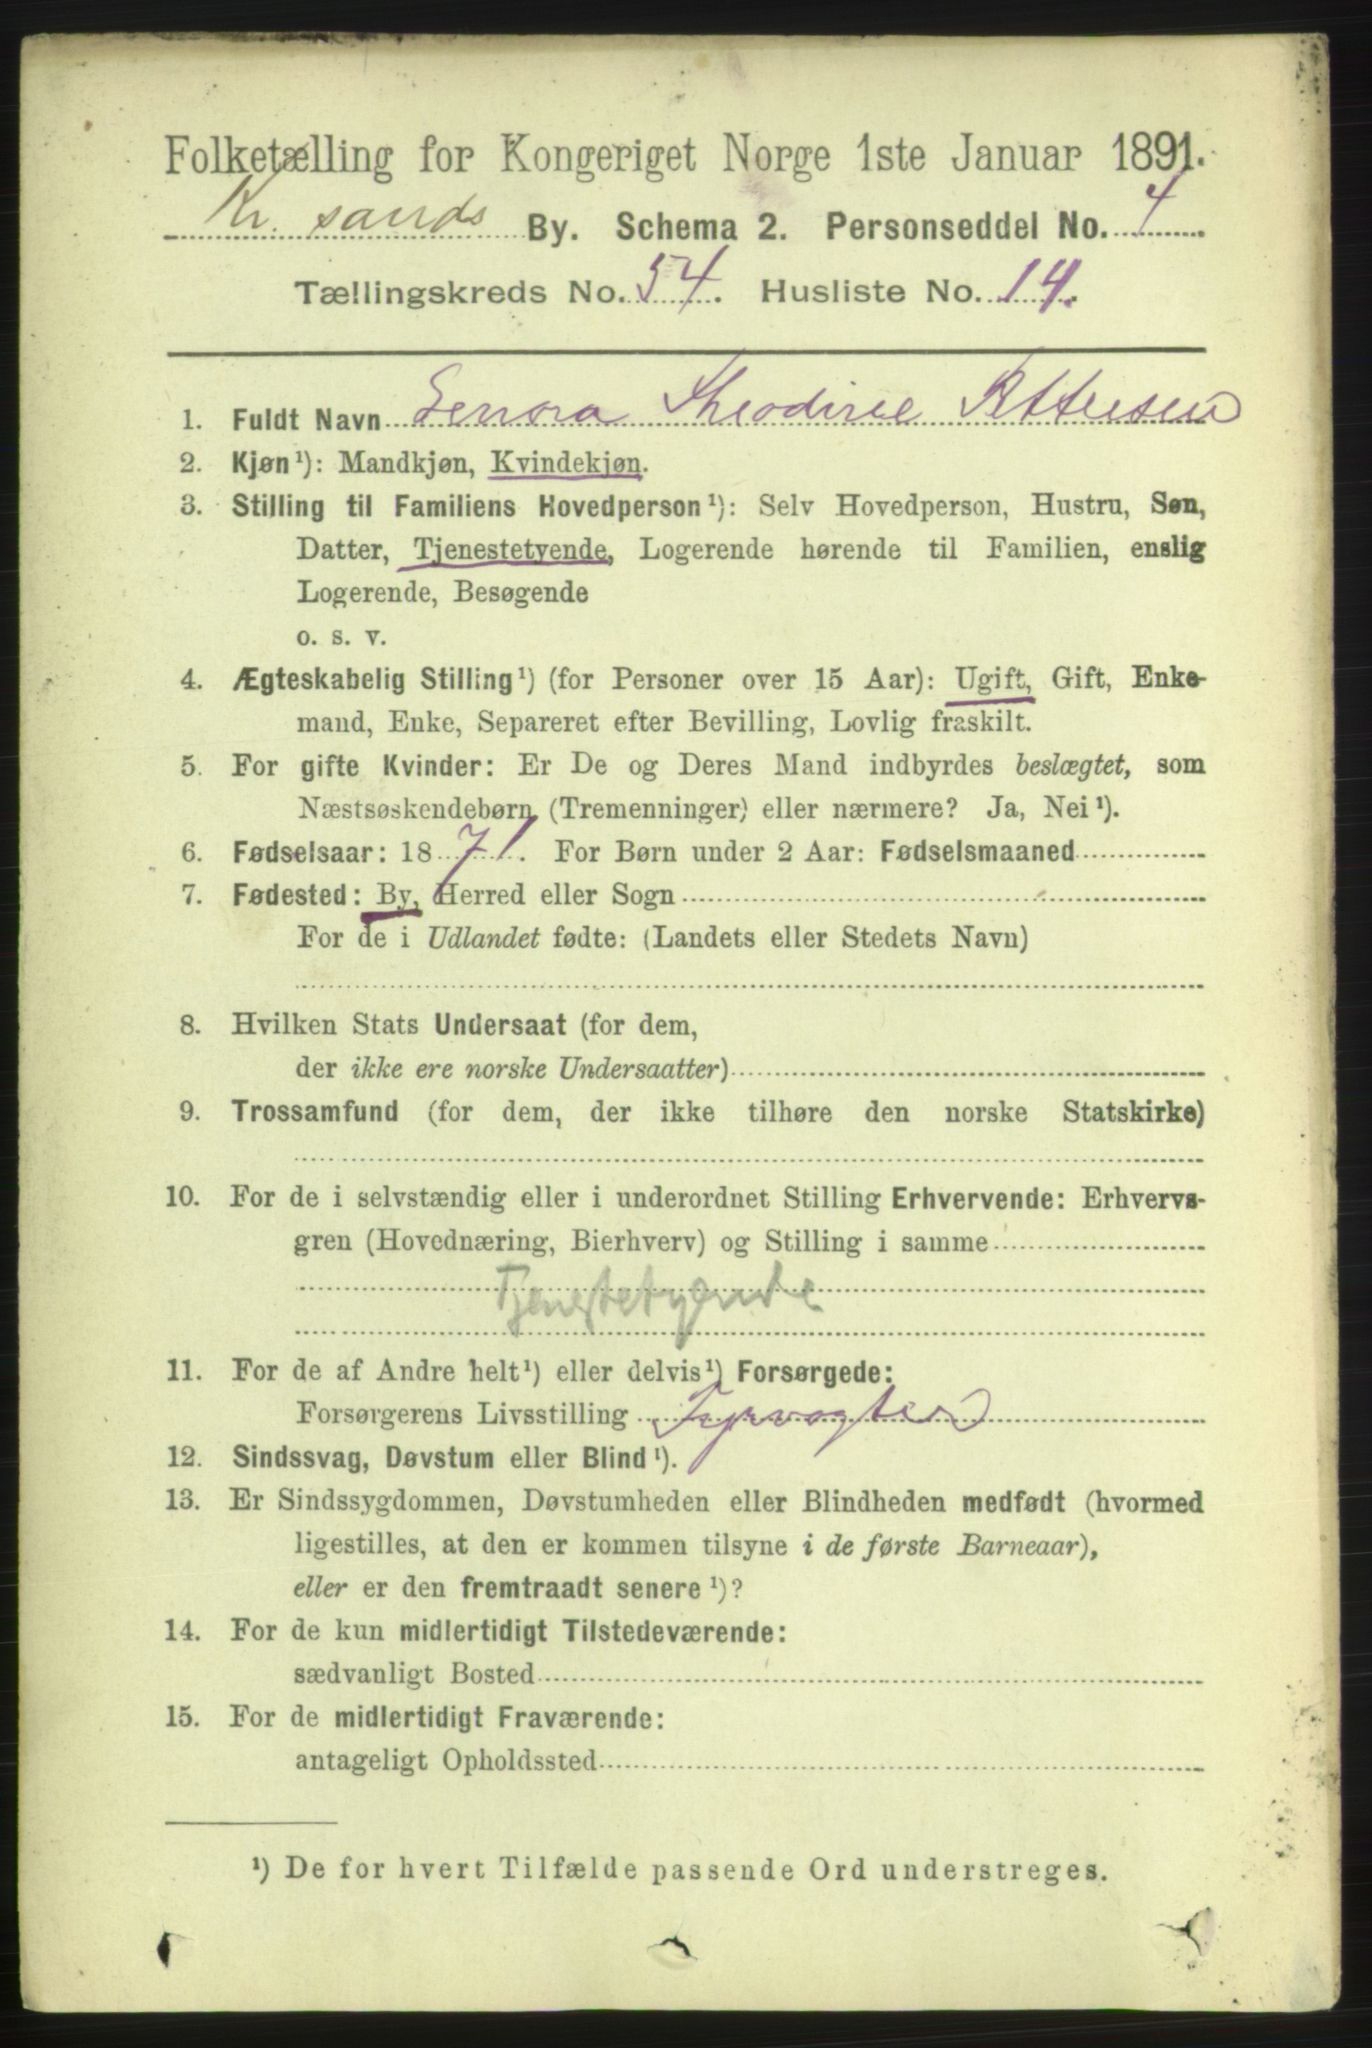 Folketælling for Kongeriget Norge 1ste Januar 1891.
Kr. sands By. Schema 2. Personseddel No. 4
Tællingskreds No. 54. Husliste No. 14.
1. Fuldt Navn Lenora Petersen
2. Kjøn¹): Mandkjøn, Kvindekjøn.
3. Stilling til Familiens Hovedperson¹): Selv Hovedperson, Hustru, Søn,
Datter, Tjenestetyende, Logerende hørende til Familien, enslig
Logerende, Besøgende
o. s. v.
4. Ægteskabelig Stilling¹) (for Personer over 15 Aar): Ugift, Gift, Enke-
mand, Enke, Separeret efter Bevilling, Lovlig fraskilt.
5. For gifte Kvinder: Er De og Deres Mand indbyrdes beslægtet, som
Næstsøskendebørn (Tremenninger) eller nærmere? Ja, Nei¹).
6. Fødselsaar: 1871. For Børn under 2 Aar: Fødselsmaaned
7. Fødested: By, Herred eller Sogn
For de i Udlandet fødte: (Landets eller Stedets Navn)
8. Hvilken Stats Undersaat (for dem,
der ikke ere norske Undersaatter)
9. Trossamfund (for dem, der ikke tilhøre den norske Statskirke)
10. For de i selvstændig eller i underordnet Stilling Erhvervende: Erhvervs-
gren (Hovednæring, Bierhverv) og Stilling i samme
Tjenestetyende
11. For de af Andre helt¹) eller delvis¹) Forsørgede:
Forsørgerens Livsstilling Fyrvogter
12. Sindssvag, Døvstum eller Blind¹).
13. Er Sindssygdommen, Døvstumheden eller Blindheden medfødt (hvormed
ligestilles, at den er kommen tilsyne i de første Barneaar),
eller er den fremtraadt senere¹)?
14. For de kun midlertidigt Tilstedeværende:
sædvanligt Bosted
15. For de midlertidigt Fraværende:
antageligt Opholdssted
¹) De for hvert Tilfælde passende Ord understreges.